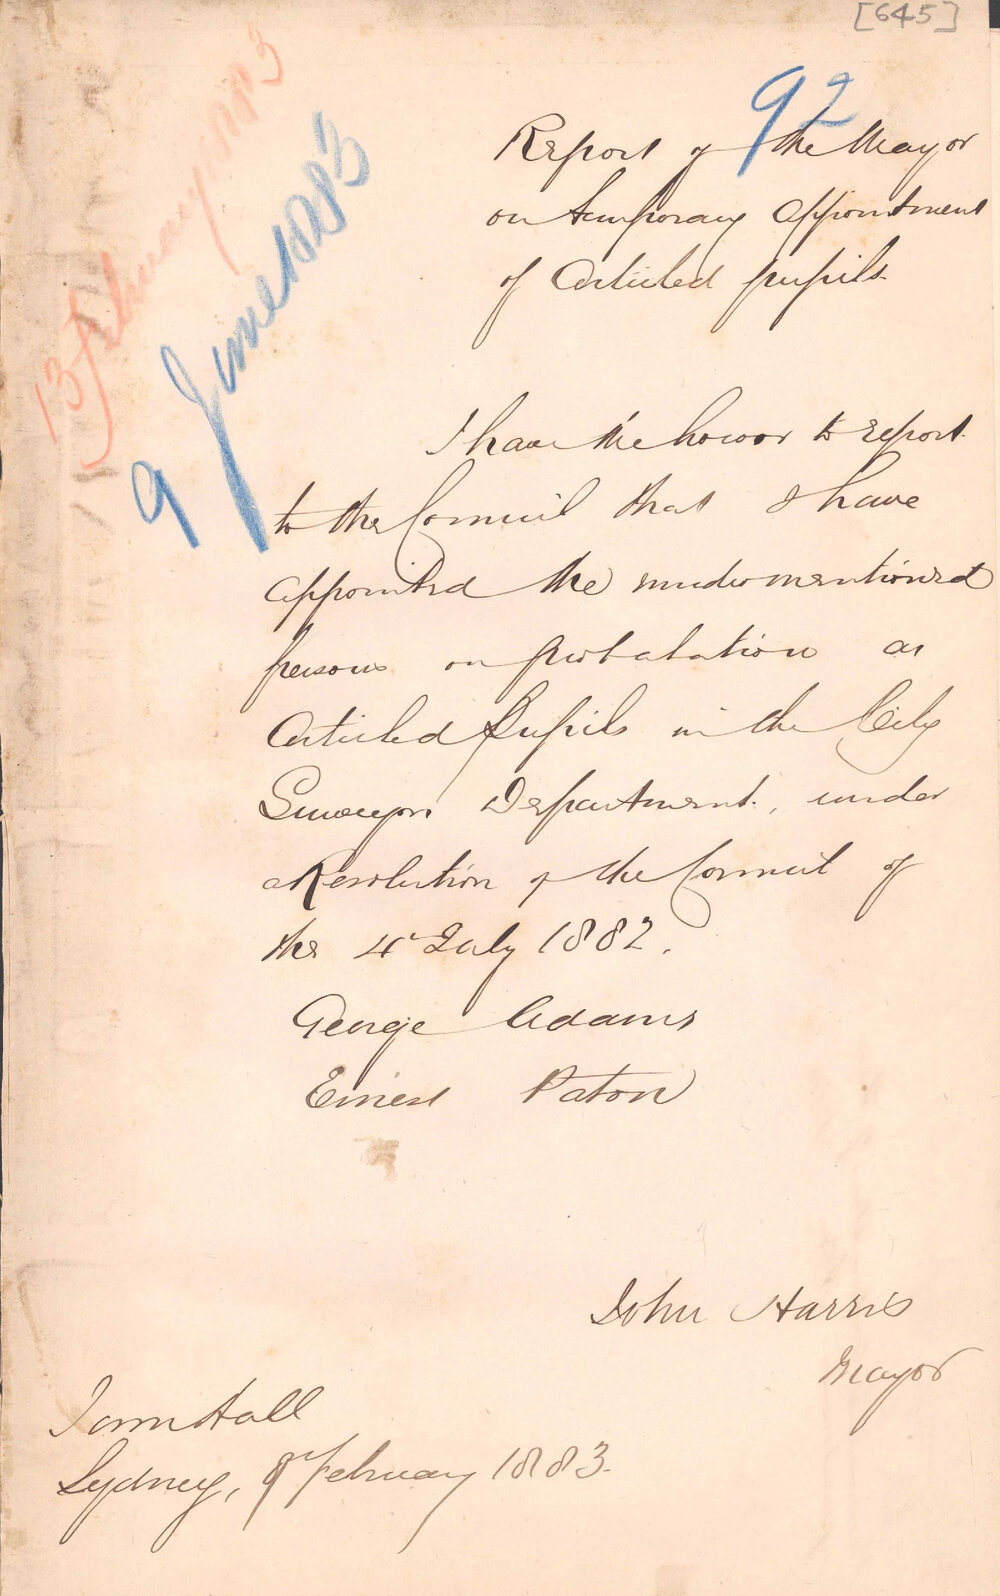 [645]
92
13 February 1883
9 June 1883
Report of the Mayor
on temporary appointment
of Articled pupils
I have the honor to report
to the Council that I have
appointed the undermentioned
persons on probatation as
Articled Pupils in the City
Surveyors Department, under
a Resolution of the Council of
the 4th July 1882.
George Adams
Ernest Paton
John Harris
Mayor
Town Hall
Sydney, 9th February 1883.